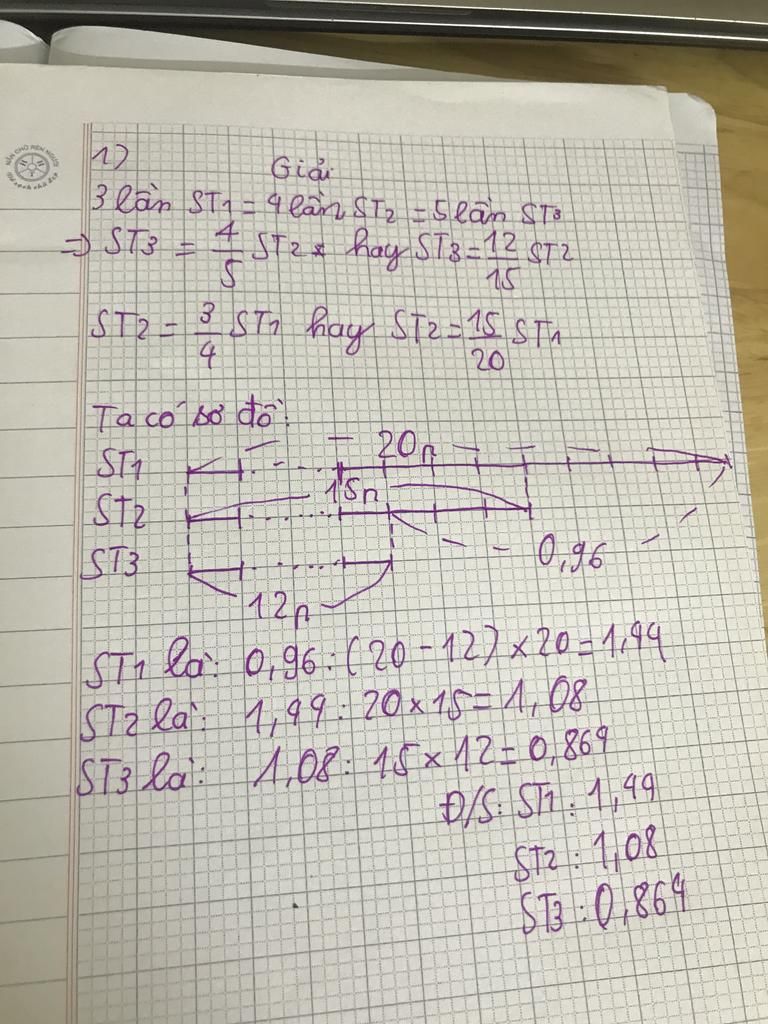 1)
Giải
3 lần ST1 = 4 lần ST2 = 5 lần ST3
=> ST3 = 4/5 ST2 hay ST3 = 12/15 ST2
ST2 = 3/4 ST1 hay ST2 = 15/20 ST1
Ta có sơ đồ:
20p
ST1
15p
ST2
0,96
ST3
12p
ST1 là: 0,96 : (20 - 12) x 20 = 1,44
ST2 là: 1,44 : 20 x 15 = 1,08
ST3 là: 1,08 : 15 x 12 = 0,864
Đ/S: ST1 : 1,44
ST2 : 1,08
ST3 : 0,864